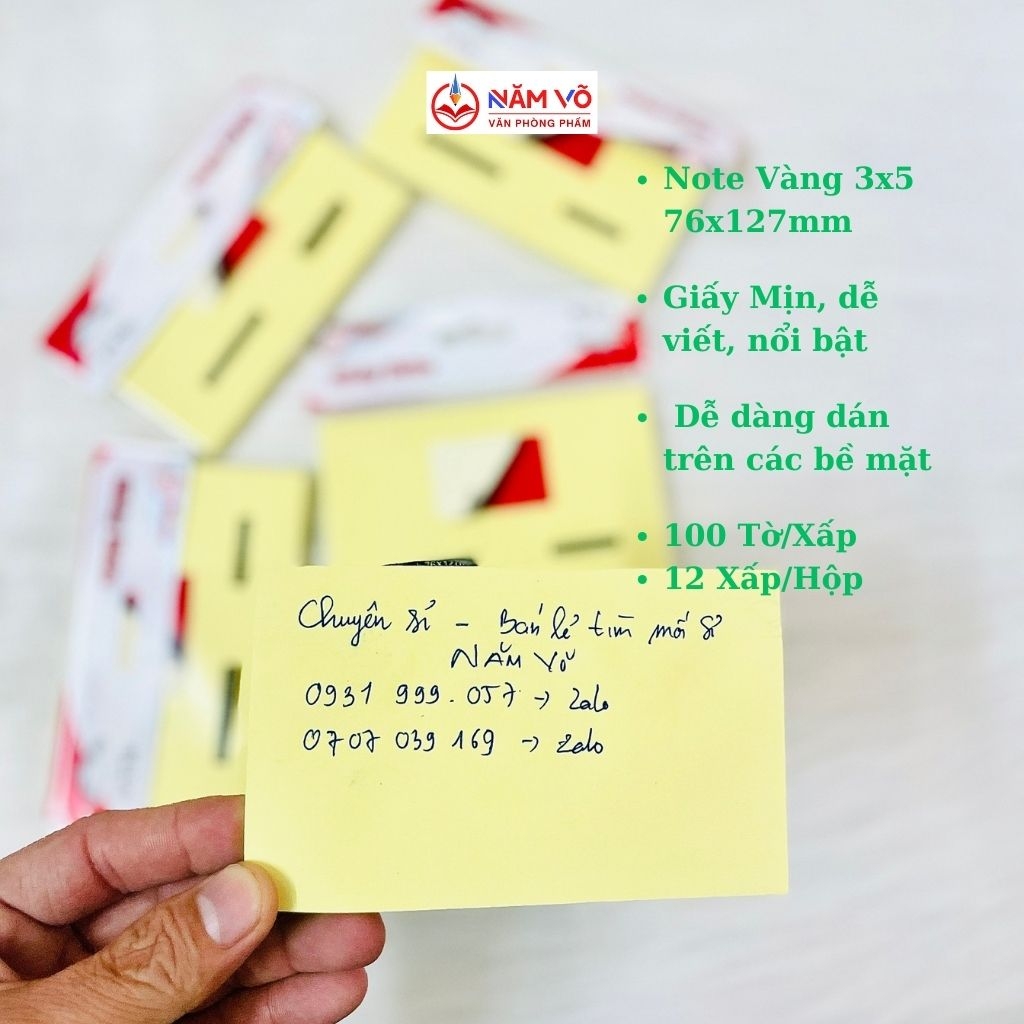 NĂM VÕ
VĂN PHÒNG PHẨM
Note Vàng 3x5
76x127mm
Giấy Mịn, dễ
viết, nổi bật
Dễ dàng dán
trên các bề mặt
100 Tờ/Xấp
12 Xấp/Hộp
Chuyên sỉ - Bán lẻ tìm mối sỉ
NĂM VÕ
0931 999.057 → Zalo
0707 039 169 → Zalo